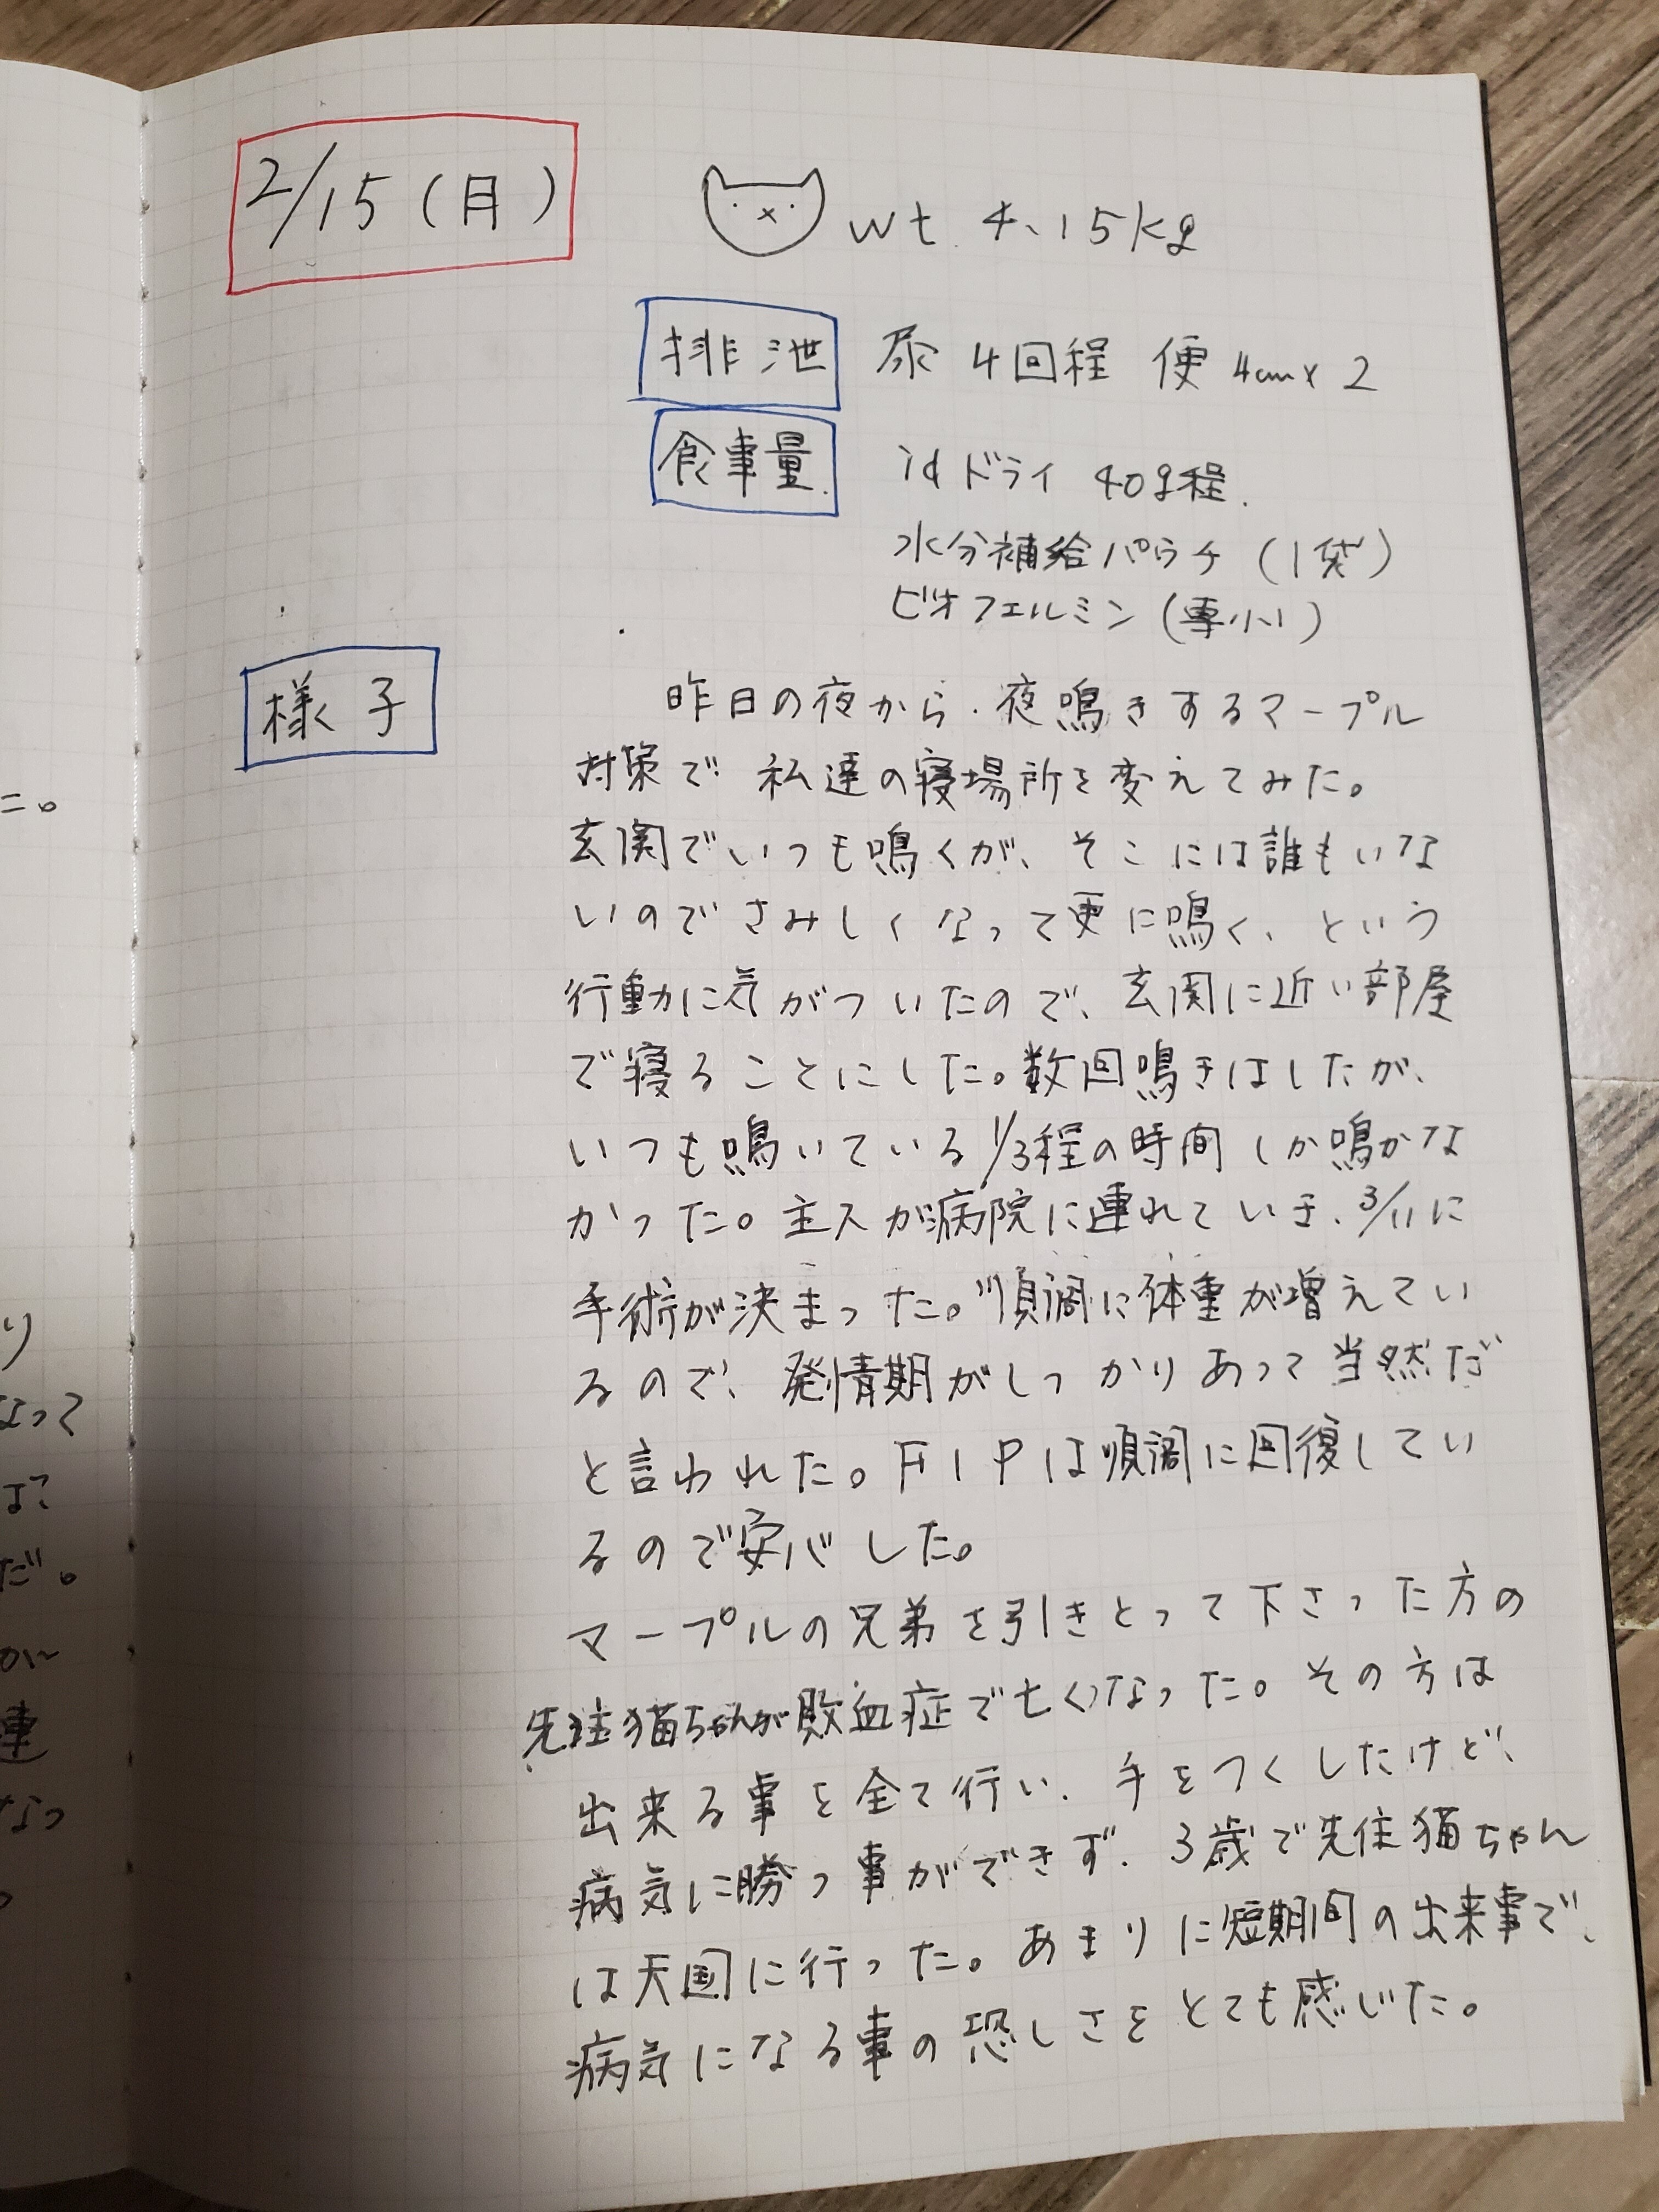 2/15(月)
wt. 4.15kg
排泄 尿 4回程 便 4cm×2
食事量. idドライ 40g程.
水分補給パウチ(1袋)
ビオフェルミン(専小1)
様子
昨日の夜から、夜鳴きするマープル
対策で 私達の寝場所を変えてみた。
玄関でいつも鳴くが、そこには誰もいな
いのでさみしくなって更に鳴く、という
行動に気がついたので、玄関に近い部屋
で寝ることにした。数回鳴きはしたが、
いつも鳴いている1/3程の時間しか鳴かな
かった。主人が病院に連れていき、3/11に
手術が決まった。順調に体重が増えてい
るので、発情期がしっかりあって当然だ
と言われた。FIPは順調に回復してい
るので安心した。
マープルの兄弟を引きとって下さった方の
先住猫ちゃんが敗血症で亡くなった。その方は
出来る事を全て行い、手をつくしたけど、
病気に勝つ事ができず、3歳で先住猫ちゃん
は天国に行った。あまりに短期間の出来事で、
病気になる事の恐しさをとても感じた。
た。
り
なって
だ。
連
なっ